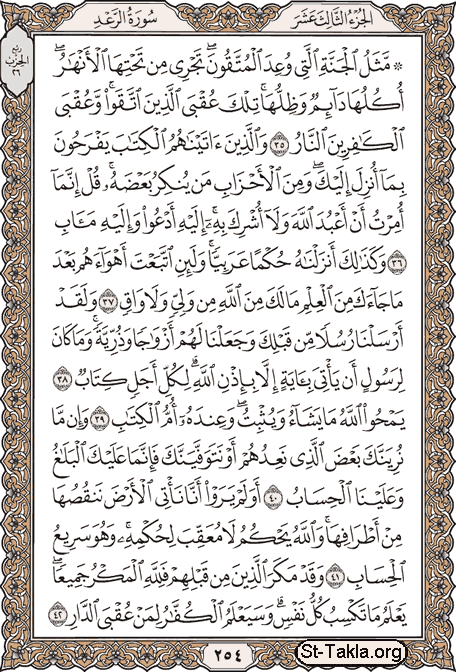 سُورَةُ الرَّعْدِ
الجُزْءُ الثَّالِثَ عَشَرَ
رُبْعُ
الحِزْبِ
٢٦
۞ مَّثَلُ ٱلْجَنَّةِ ٱلَّتِى وُعِدَ ٱلْمُتَّقُونَ ۖ تَجْرِى مِن تَحْتِهَا ٱلْأَنْهَٰرُ ۖ
أُكُلُهَا دَآئِمٌ وَظِلُّهَا ۚ تِلْكَ عُقْبَى ٱلَّذِينَ ٱتَّقَوا۟ ۖ وَّعُقْبَى
ٱلْكَٰفِرِينَ ٱلنَّارُ ٣٥ وَٱلَّذِينَ ءَاتَيْنَٰهُمُ ٱلْكِتَٰبَ يَفْرَحُونَ
بِمَآ أُنزِلَ إِلَيْكَ ۖ وَمِنَ ٱلْأَحْزَابِ مَن يُنكِرُ بَعْضَهُۥ ۚ قُلْ إِنَّمَآ
أُمِرْتُ أَنْ أَعْبُدَ ٱللَّهَ وَلَآ أُشْرِكَ بِهِۦٓ ۚ إِلَيْهِ أَدْعُوا۟ وَإِلَيْهِ مَـَٔابِ
٣٦ وَكَذَٰلِكَ أَنزَلْنَٰهُ حُكْمًا عَرَبِيًّا ۚ وَلَئِنِ ٱتَّبَعْتَ أَهْوَآءَهُم بَعْدَ
مَا جَآءَكَ مِنَ ٱلْعِلْمِ مَا لَكَ مِنَ ٱللَّهِ مِن وَلِىٍّ وَلَا وَاقٍ ٣٧ وَلَقَدْ
أَرْسَلْنَا رُسُلًا مِّن قَبْلِكَ وَجَعَلْنَا لَهُمْ أَزْوَٰجًا وَذُرِّيَّةً ۚ وَمَا كَانَ
لِرَسُولٍ أَن يَأْتِىَ بِـَٔايَةٍ إِلَّا بِإِذْنِ ٱللَّهِ ۗ لِكُلِّ أَجَلٍ كِتَابٌ ٣٨
يَمْحُوا۟ ٱللَّهُ مَا يَشَآءُ وَيُثْبِتُ ۖ وَعِندَهُۥٓ أُمُّ ٱلْكِتَٰبِ ٣٩ وَإِن مَّا
نُرِيَنَّكَ بَعْضَ ٱلَّذِى نَعِدُهُمْ أَوْ نَتَوَفَّيَنَّكَ فَإِنَّمَا عَلَيْكَ ٱلْبَلَٰغُ
وَعَلَيْنَا ٱلْحِسَابُ ٤٠ أَوَلَمْ يَرَوْا۟ أَنَّا نَأْتِى ٱلْأَرْضَ نَنقُصُهَا
مِنْ أَطْرَافِهَا ۚ وَٱللَّهُ يَحْكُمُ لَا مُعَقِّبَ لِحُكْمِهِۦ ۚ وَهُوَ سَرِيعُ
ٱلْحِسَابِ ٤١ وَقَدْ مَكَرَ ٱلَّذِينَ مِن قَبْلِهِمْ فَلِلَّهِ ٱلْمَكْرُ جَمِيعًا ۖ
يَعْلَمُ مَا تَكْسِبُ كُلُّ نَفْسٍ ۗ وَسَيَعْلَمُ ٱلْكُفَّٰرُ لِمَنْ عُقْبَى ٱلدَّارِ ٤٢
٢٥٤
St-Takla.org